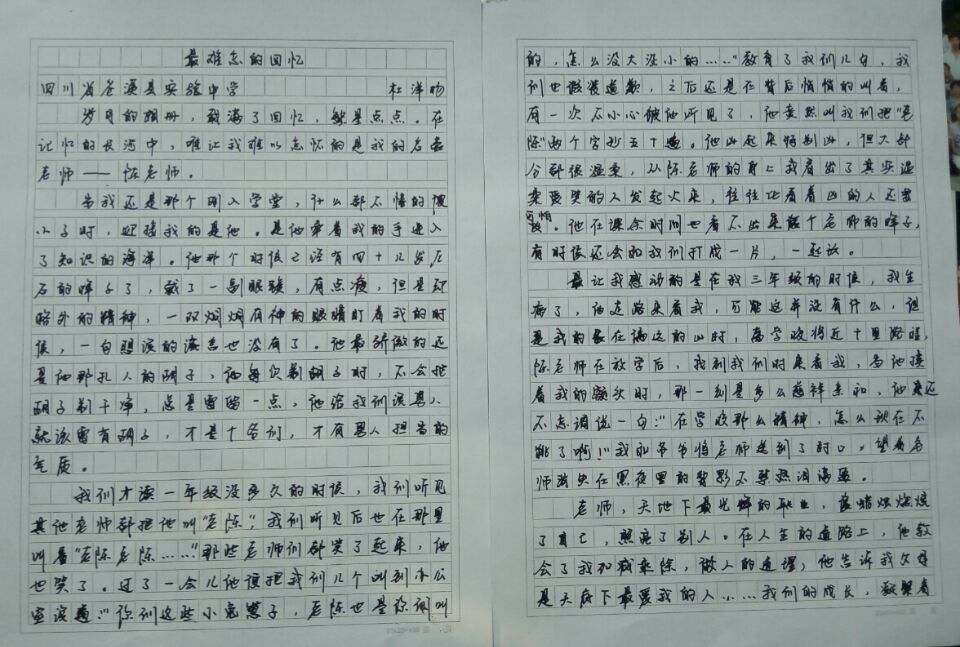 最难忘的回忆
四川省苍溪县实验中学 杜洋旸
岁月的相册，载满了回忆，繁星点点。在
记忆的长河中，唯让我难以忘怀的是我的启蒙
老师——陈老师。
当我还是那个刚入学堂，什么都不懂的傻
小子时，迎接我的是他。是他牵着我的手进入
了知识的海洋。他那个时候已经有四十几岁左
右的样子了，戴了一副眼镜，有点瘦，但是却
格外的精神，一双炯炯有神的眼睛盯着我的时
候，一句想说的谎言也没有了。他最骄傲的还
是他那扎人的胡子，他每次剃胡子时，不会把
胡子剃干净，总是要留一点，他给我们说男人
就该留有胡子，才是个爷们，才有男人担当的
气质。
我们才读一年级没多久的时候，我们听见
其他老师都把他叫“老陈”，我们听见后也在那里
叫着“老陈老陈……”那些老师们都笑了起来，他
也笑了。过了一会儿他便把我们几个叫到办公
室说道：“你们这些小鬼崽子，老陈也是你们叫
的，怎么没大没小的……”教育了我们几句，我
们也假装道歉，之后还是在背后悄悄的叫着，
有一次不小心被他听见了，他竟然叫我们把“老
陈”两个字抄五十遍。他凶起来特别凶，但大部
分都很温柔，从陈老师的身上我看出了其实温
柔爱笑的人发起火来，往往比看着凶的人还要
可怕。他在课余时间也看不出来是个老师的样子，
有时候还会和我们打成一片，一起玩。
最让我感动的是在我三年级的时候，我生
病了，他走路来看我，可能这并没有什么，但
是我的家在偏远的山村，离学校将近十里路程，
陈老师在放学后，我到我们村来看我，当他摸
着我的额头时，那一刻是多么慈祥亲和，他还
不忘调侃一句：“在学校那么精神，怎么现在不
跳了啊！”我和爷爷将老师送到了村口，望着老
师消失在黑夜里的背影不禁热泪满盈。
老师，天地下最光辉的职业，蜡烛燃烧
了自己，照亮了别人。在人生的道路上，他教
会了我加减乘除，做人的道理，他告诉我父母
是天底下最爱我的人……我们的成长，凝聚着